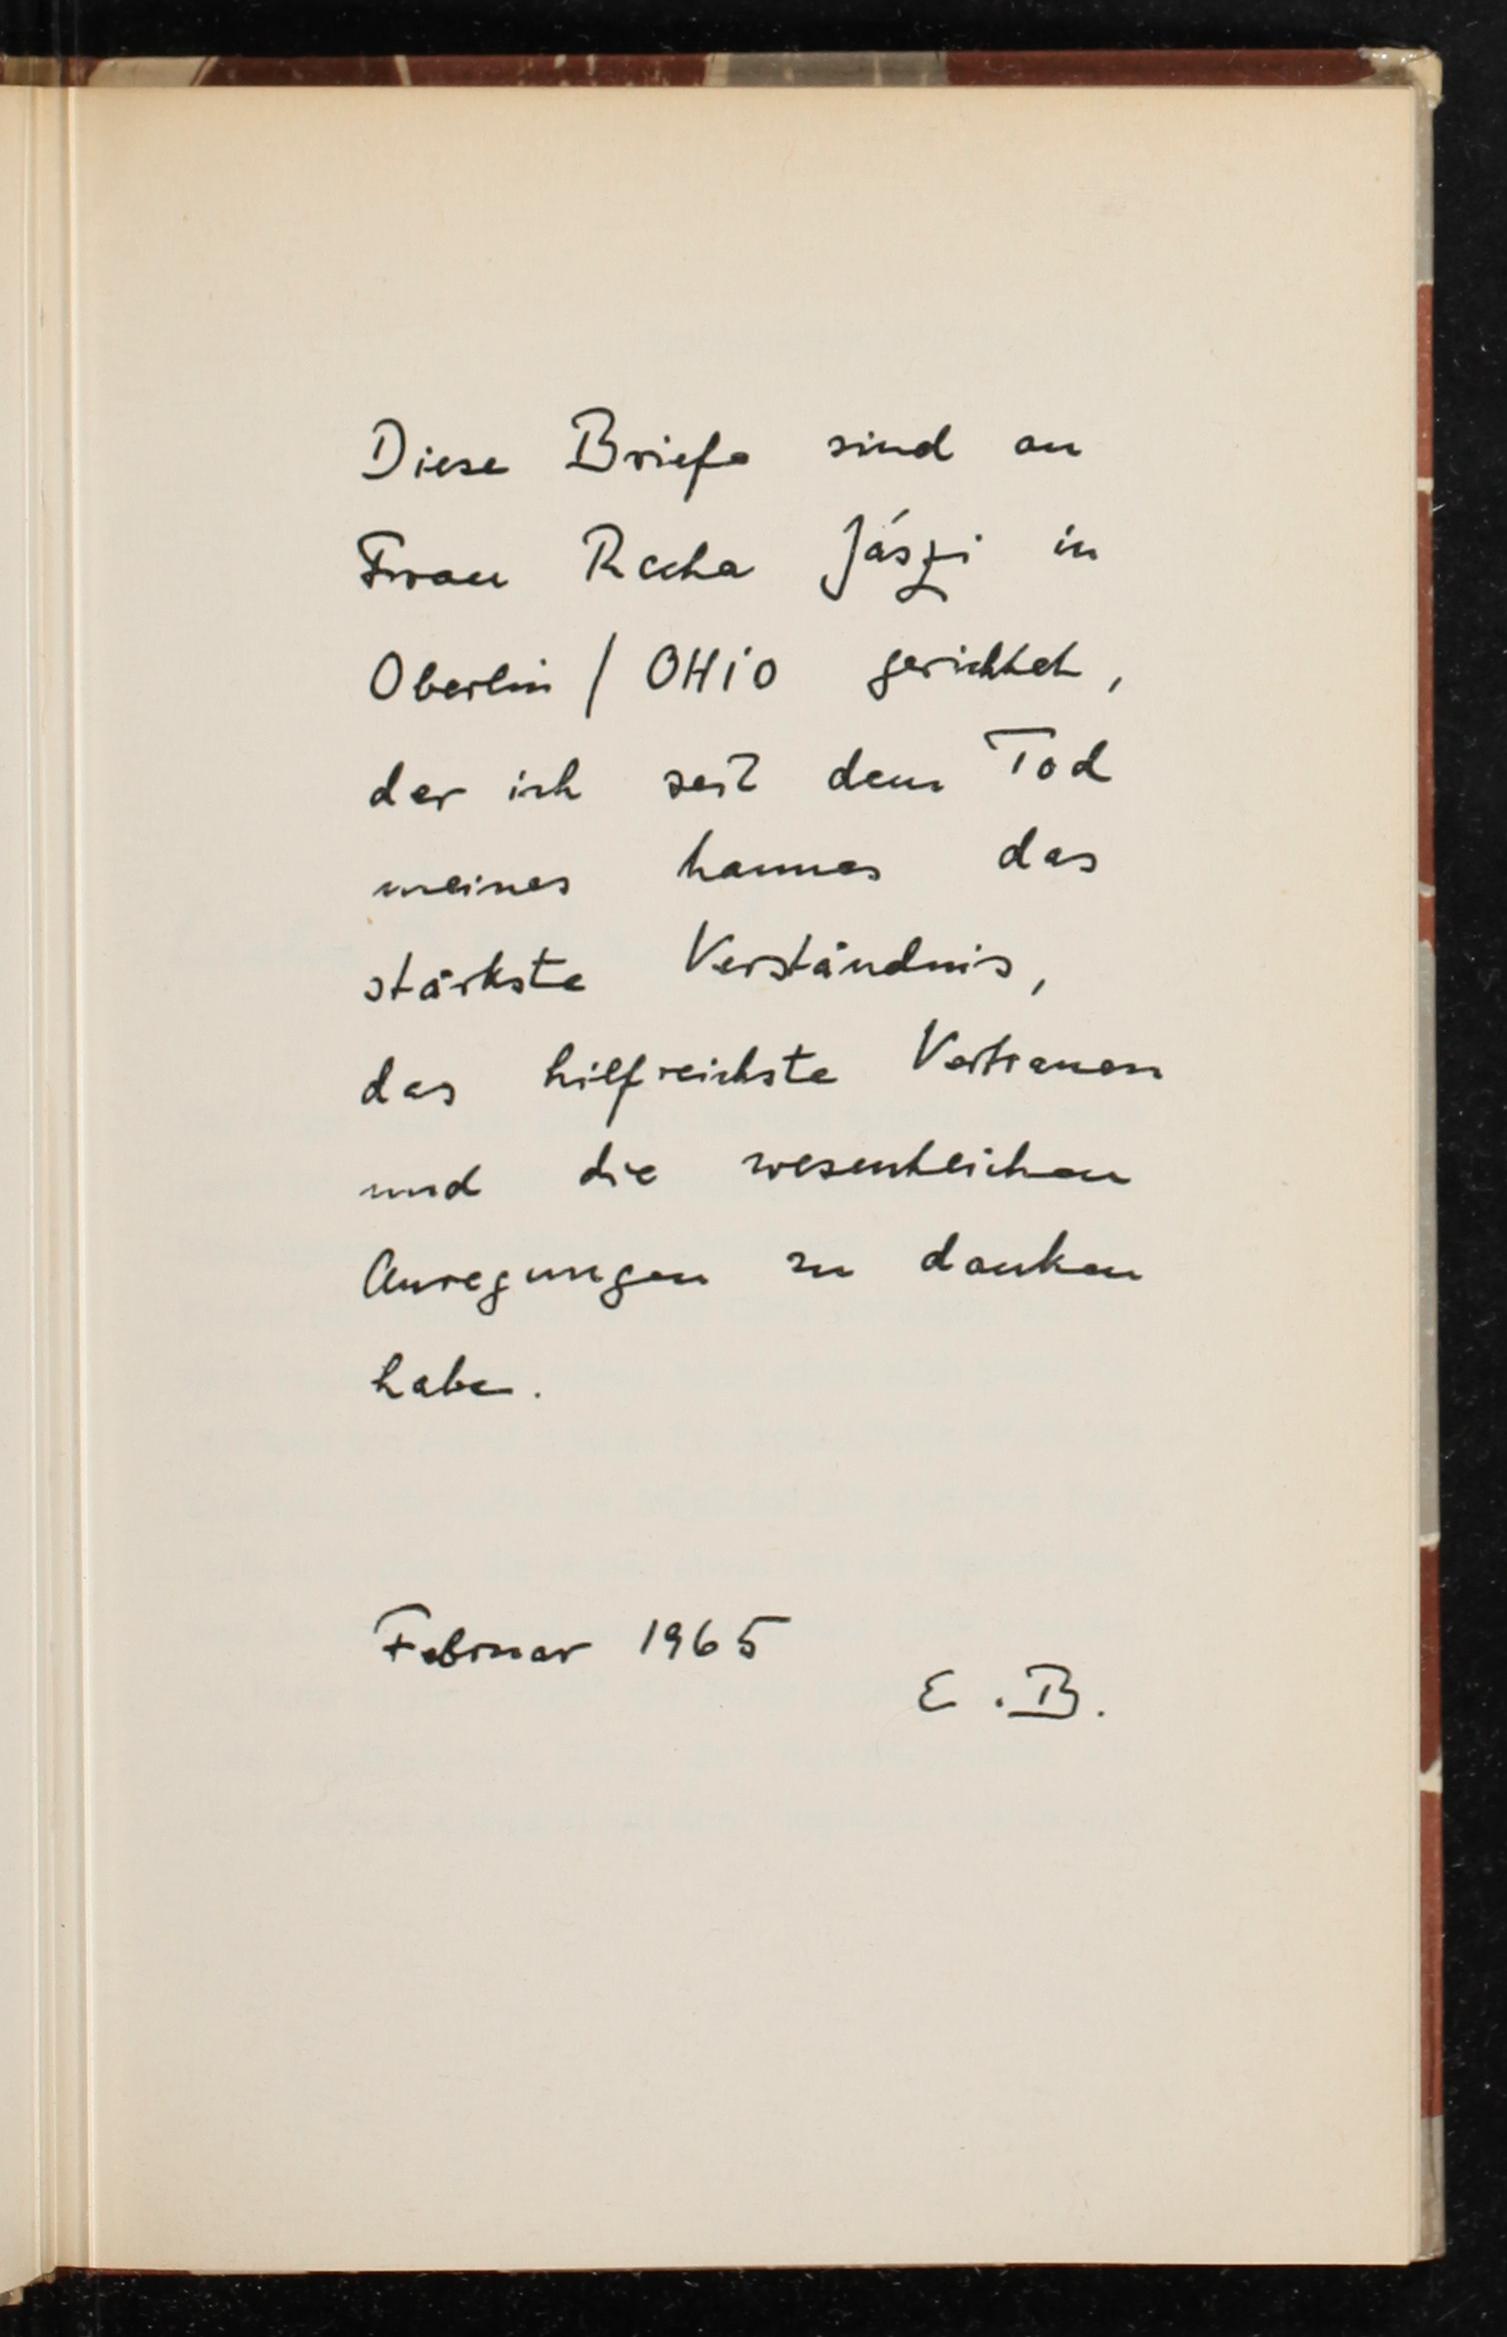 Diese Briefe sind an
Frau Recha Jászi in
Oberlin / OHiO gerichtet,
der ich seit dem Tod
meines hannes das
stärkste Verständnis,
das hilfreichste Vertrauen
und die wesentlichen
Anregungen zu danken
habe.
Februar 1965
E. B.